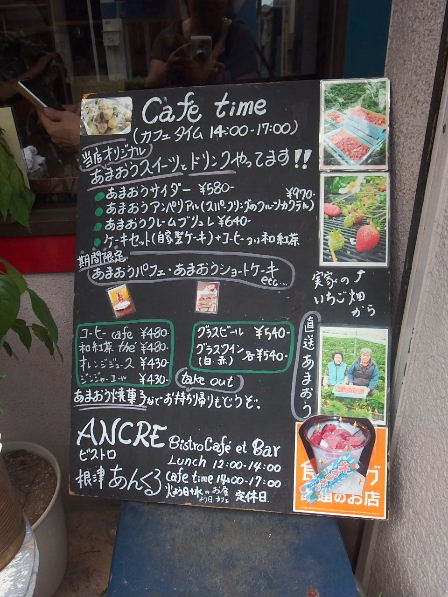 Cafe time
(カフェタイム 14:00-17:00)
当店オリジナル
あまおうスイーツとドリンクやってます!!
あまおうサイダー ¥580-
あまおうアンペリアル(スパークリングのフルーツカクテル) ¥970-
あまおうクレームブリュレ ¥640-
ケーキセット(自家製ケーキ)+コーヒーor和紅茶
期間限定
あまおうパフェ・あまおうショートケーキ
etc...
実家の
いちご畑
から
直送あまおう
コーヒー cafe ¥480-
和紅茶 the ¥480-
オレンジジュース ¥430-
ジンジャーエール ¥430-
グラスビール ¥540-
グラスワイン 各¥540-
(白・赤)
take out
あまおう焼菓子などお持ち帰りもどうぞ。
ANCRE Bistro Cafe et Bar
ビストロ
Lunch 12:00-14:00
根津 あんくる
Cafe time 14:00-17:00
定休日
のお店